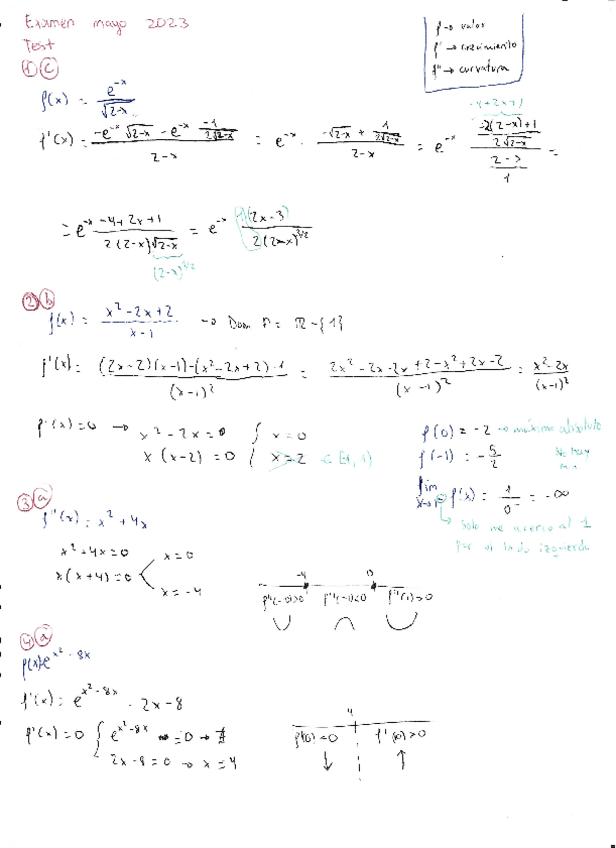 Examen mayo 2023
Test
f → valor
f' → crecimiento
f'' → curvatura
① ⓒ
f(x) = e^-x / √(2-x)
f'(x) = (-e^-x √(2-x) - e^-x · -1/(2√(2-x))) / (2-x) = e^-x · (-√(2-x) + 1/(2√(2-x))) / (2-x) = e^-x ((-2(2-x)+1) / (2√(2-x))) / ((2-x)/1) =
-4+2x+1
= e^-x (-4+2x+1) / (2(2-x)√(2-x)) = e^-x (2x-3) / (2(2-x)^3/2)
(2-x)^3/2
② ⓑ
f(x) = (x²-2x+2) / (x-1) → Dom f = ℝ-{1}
f'(x) = ((2x-2)(x-1)-(x²-2x+2)·1) / (x-1)² = (2x²-2x-2x+2-x²+2x-2) / (x-1)² = (x²-2x) / (x-1)²
f'(x)=0 → x²-2x=0 { x=0
x(x-2)=0 { x=2
f(0) = -2 → máximo absoluto
f(-1) = -5/2 No hay min
lim x→1⁻ f(x) = 1/0⁻ = -∞
Solo me acerco al 1
por el lado izquierdo
③ ⓐ
f''(x) = x²+4x
x²+4x=0
x(x+4)=0 < x=0
x=-4
-4 0
f''(-1)<0 f''(1)>0
④ ⓐ
f(x)=e^x²-8x
f'(x) = e^x²-8x · 2x-8
f'(x)=0 { e^x²-8x =0 → ∄
2x-8=0 → x=4
4
f'(0)<0 f'(10)>0
↓ ↑